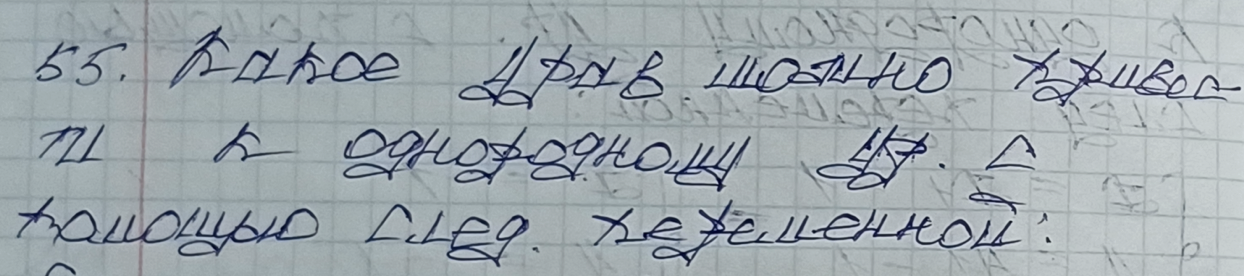 55. Какое урав можно привес
ти к однородному ур. с
помощью след. переменной: